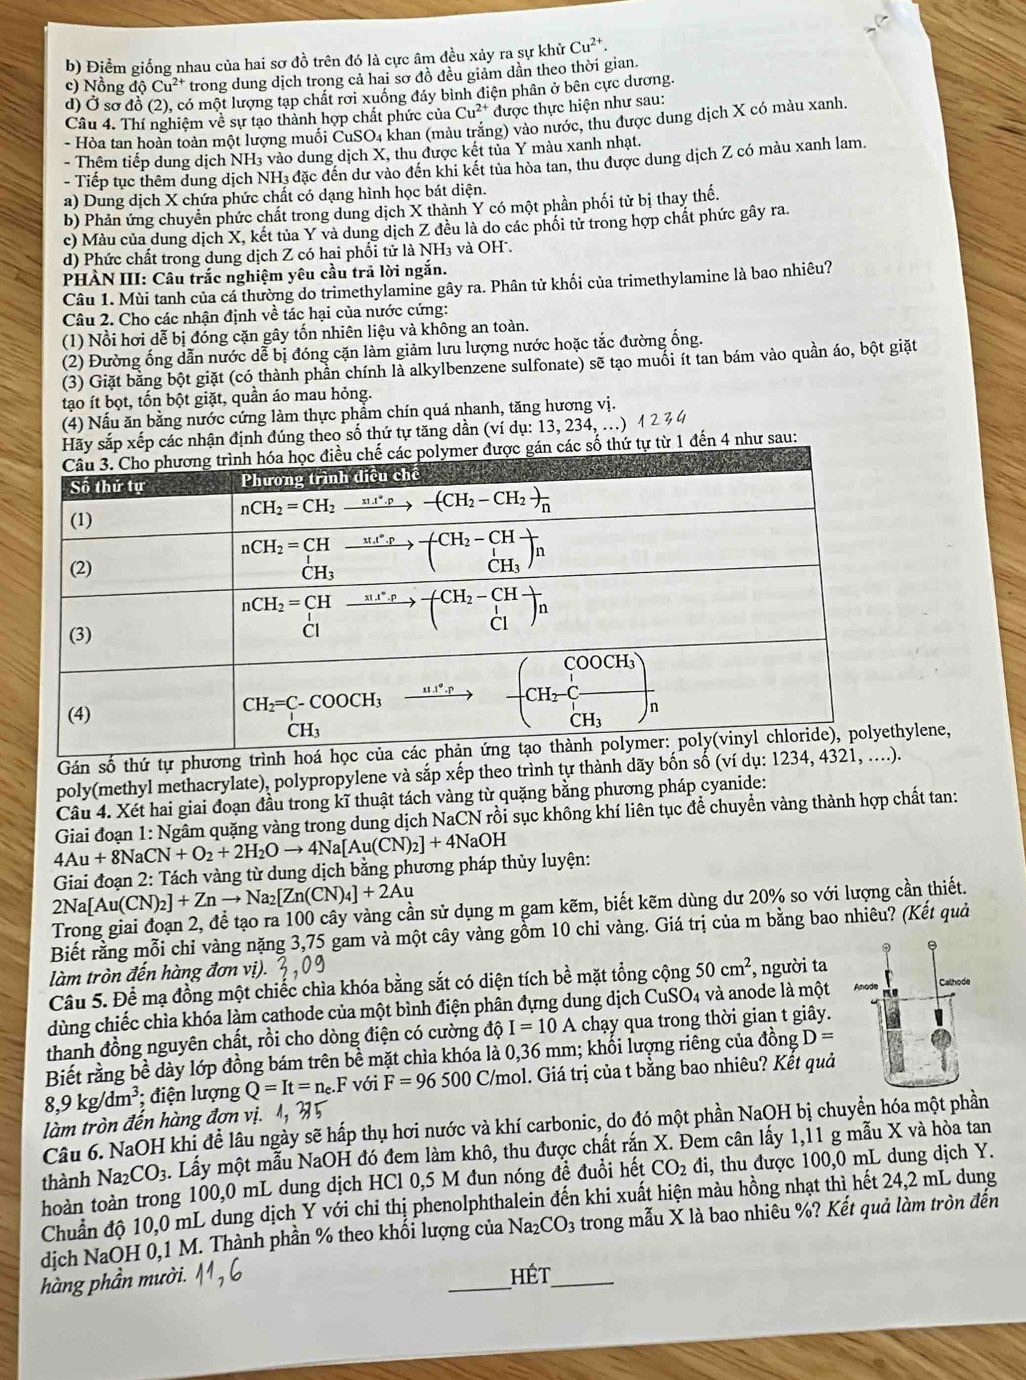 b) Điểm giống nhau của hai sơ đồ trên đó là cực âm đều xảy ra sự khử Cu²⁺.
c) Nồng độ Cu²⁺ trong dung dịch trong cả hai sơ đồ đều giảm dần theo thời gian.
d) Ở sơ đồ (2), có một lượng tạp chất rơi xuống đáy bình điện phân ở bên cực dương.
Câu 4. Thí nghiệm về sự tạo thành hợp chất phức của Cu²⁺ được thực hiện như sau:
- Hòa tan hoàn toàn một lượng muối CuSO₄ khan (màu trắng) vào nước, thu được dung dịch X có màu xanh.
- Thêm tiếp dung dịch NH₃ vào dung dịch X, thu được kết tủa Y màu xanh nhạt.
- Tiếp tục thêm dung dịch NH₃ đặc đến dư vào đến khi kết tủa hòa tan, thu được dung dịch Z có màu xanh lam.
a) Dung dịch X chứa phức chất có dạng hình học bát diện.
b) Phản ứng chuyển phức chất trong dung dịch X thành Y có một phần phối tử bị thay thế.
c) Màu của dung dịch X, kết tủa Y và dung dịch Z đều là do các phối tử trong hợp chất phức gây ra.
d) Phức chất trong dung dịch Z có hai phối tử là NH₃ và OH⁻.
PHẦN III: Câu trắc nghiệm yêu cầu trả lời ngắn.
Câu 1. Mùi tanh của cá thường do trimethylamine gây ra. Phân tử khối của trimethylamine là bao nhiêu?
Câu 2. Cho các nhận định về tác hại của nước cứng:
(1) Nồi hơi dễ bị đóng cặn gây tốn nhiên liệu và không an toàn.
(2) Đường ống dẫn nước dễ bị đóng cặn làm giảm lưu lượng nước hoặc tắc đường ống.
(3) Giặt bằng bột giặt (có thành phần chính là alkylbenzene sulfonate) sẽ tạo muối ít tan bám vào quần áo, bột giặt
tạo ít bọt, tốn bột giặt, quần áo mau hỏng.
(4) Nấu ăn bằng nước cứng làm thực phẩm chín quá nhanh, tăng hương vị.
Hãy sắp xếp các nhận định đúng theo số thứ tự tăng dần (ví dụ: 13, 234, …) 1234
Câu 3. Cho phương trình hóa học điều chế các polymer được gán các số thứ tự từ 1 đến 4 như sau:
Số thứ tự Phương trình điều chế
(1) nCH₂ = CH₂ xt.t°.p → -(CH₂ - CH₂)-n
(2) nCH₂ = CH xt.t°.p → (CH₂ - CH)n
CH₃ CH₃
(3) nCH₂ = CH xt.t°.p → (CH₂ - CH)n
Cl Cl
COOCH₃
(4) CH₂=C- COOCH₃ xt.t°.p → (CH₂-C)n
CH₃ CH₃
Gán số thứ tự phương trình hoá học của các phản ứng tạo thành polymer: poly(vinyl chloride), polyethylene,
poly(methyl methacrylate), polypropylene và sắp xếp theo trình tự thành dãy bốn số (ví dụ: 1234, 4321, ….).
Câu 4. Xét hai giai đoạn đầu trong kĩ thuật tách vàng từ quặng bằng phương pháp cyanide:
Giai đoạn 1: Ngâm quặng vàng trong dung dịch NaCN rồi sục không khí liên tục để chuyển vàng thành hợp chất tan:
4Au + 8NaCN + O₂ + 2H₂O → 4Na[Au(CN)₂] + 4NaOH
Giai đoạn 2: Tách vàng từ dung dịch bằng phương pháp thủy luyện:
2Na[Au(CN)₂] + Zn → Na₂[Zn(CN)₄] + 2Au
Trong giai đoạn 2, để tạo ra 100 cây vàng cần sử dụng m gam kẽm, biết kẽm dùng dư 20% so với lượng cần thiết.
Biết rằng mỗi chỉ vàng nặng 3,75 gam và một cây vàng gồm 10 chỉ vàng. Giá trị của m bằng bao nhiêu? (Kết quả
làm tròn đến hàng đơn vị). 3,09
Câu 5. Để mạ đồng một chiếc chìa khóa bằng sắt có diện tích bề mặt tổng cộng 50 cm², người ta
dùng chiếc chìa khóa làm cathode của một bình điện phân đựng dung dịch CuSO₄ và anode là một
thanh đồng nguyên chất, rồi cho dòng điện có cường độ I = 10 A chạy qua trong thời gian t giây.
Biết rằng bề dày lớp đồng bám trên bề mặt chìa khóa là 0,36 mm; khối lượng riêng của đồng D =
8,9 kg/dm³; điện lượng Q = It = nₑ.F với F = 96 500 C/mol. Giá trị của t bằng bao nhiêu? Kết quả
làm tròn đến hàng đơn vị.
Anode Cathode
Câu 6. NaOH khi để lâu ngày sẽ hấp thụ hơi nước và khí carbonic, do đó một phần NaOH bị chuyển hóa một phần
thành Na₂CO₃. Lấy một mẫu NaOH đó đem làm khô, thu được chất rắn X. Đem cân lấy 1,11 g mẫu X và hòa tan
hoàn toàn trong 100,0 mL dung dịch HCl 0,5 M đun nóng để đuổi hết CO₂ đi, thu được 100,0 mL dung dịch Y.
Chuẩn độ 10,0 mL dung dịch Y với chỉ thị phenolphthalein đến khi xuất hiện màu hồng nhạt thì hết 24,2 mL dung
dịch NaOH 0,1 M. Thành phần % theo khối lượng của Na₂CO₃ trong mẫu X là bao nhiêu %? Kết quả làm tròn đến
hàng phần mười. 11,6
______HẾT______